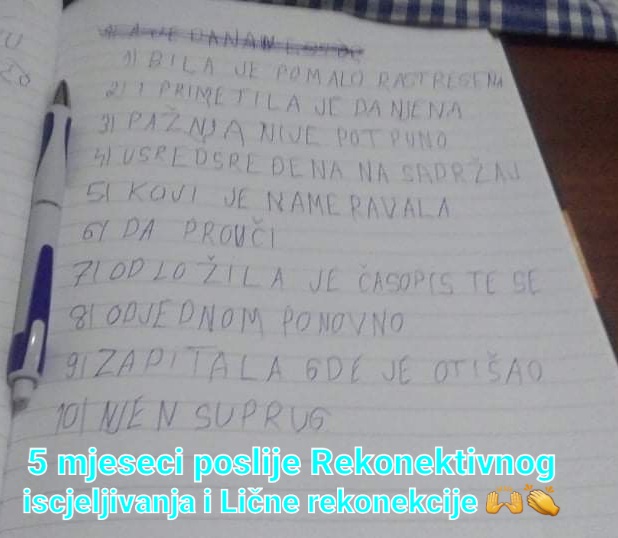 1) BILA JE POMALO RASTRESENA
2) I PRIMETILA JE DA NJENA
3) PAŽNJA NIJE POTPUNO
4) USREDSREĐENA NA SADRŽAJ
5) KOJI JE NAMERAVALA
6) DA PROUČI
7) ODLOŽILA JE ČASOPIS TE SE
8) ODJEDNOM PONOVNO
9) ZAPITALA GDE JE OTIŠAO
10) NJEN SUPRUG
5 mjeseci poslije Rekonektivnog
iscjeljivanja i Lične rekonekcije 🙌👏